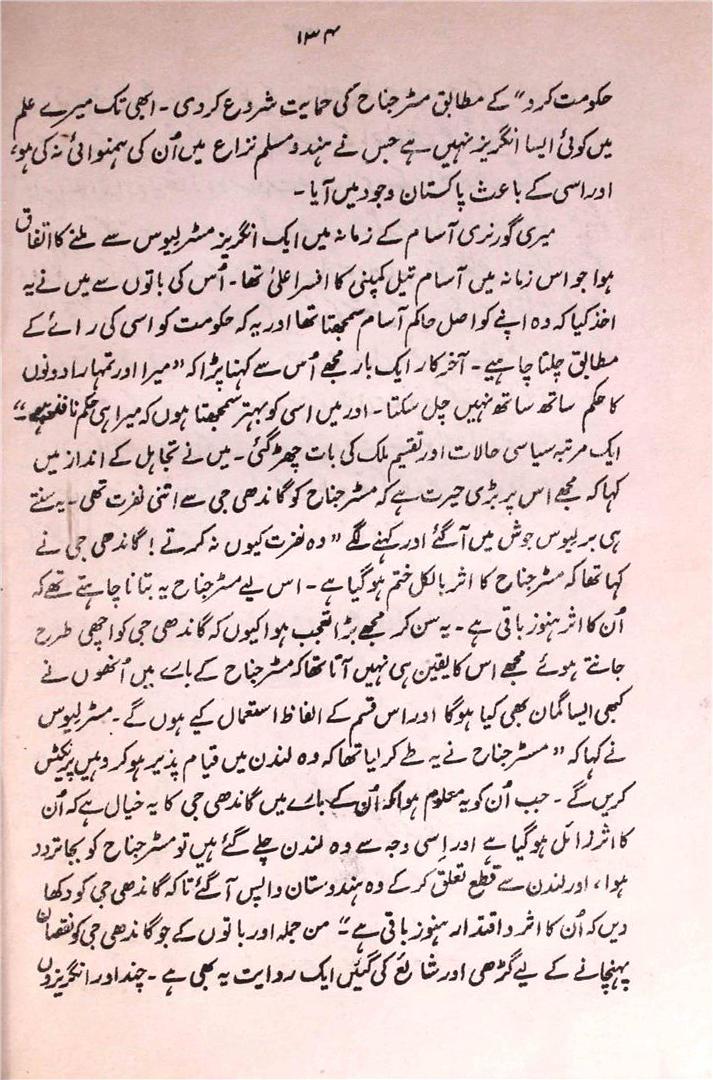 ۱۳۴
حکومت کرو“ کے مطابق مسٹر جناح کی حمایت شروع کردی ۔ ابھی تک میرے علم
میں کوئی ایسا انگریز نہیں ہے جس نے ہندو مسلم نزاع میں اُن کی ہمنوائی نہ کی ہو،
اور اسی کے باعث پاکستان وجود میں آیا ۔
میری گورنری آسام کے زمانہ میں ایک انگریز مسٹر لیوس سے ملنے کا اتفاق
ہوا جو اس زمانہ میں آسام تیل کمپنی کا افسر اعلیٰ تھا ۔ اُس کی باتوں سے میں نے یہ
اخذ کیا کہ وہ اپنے کو اصل حاکم آسام سمجھتا تھا اور یہ کہ حکومت کو اسی کی رائے کے
مطابق چلنا چاہیے ۔ آخر کار ایک بار مجھے اُس سے کہنا پڑا کہ ”میرا اور تمہارا دونوں
کا حکم ساتھ ساتھ نہیں چل سکتا ۔ اور میں اسی کو بہتر سمجھتا ہوں کہ میرا ہی حکم نافذ رہے ۔“
ایک مرتبہ سیاسی حالات اور تقسیم ملک کی بات چھڑ گئی ۔ میں نے تجاہل کے انداز میں
کہا کہ مجھے اس پر بڑی حیرت ہے کہ مسٹر جناح کو گاندھی جی سے اتنی نفرت تھی ۔ یہ سنتے
ہی بر لیوس جوش میں آگئے اور کہنے لگے ”وہ نفرت کیوں نہ کرتے ! گاندھی جی نے
کہا تھا کہ مسٹر جناح کا اثر بالکل ختم ہو گیا ہے ۔ اس لیے مسٹر جناح یہ بتانا چاہتے تھے کہ
اُن کا اثر ہنوز باقی ہے ۔ یہ سن کر مجھے بڑا تعجب ہوا کیوں کہ گاندھی جی کو اچھی طرح
جانتے ہوئے مجھے اس کا یقین ہی نہیں آتا تھا کہ مسٹر جناح کے بارے میں اُنھوں نے
کبھی ایسا گمان بھی کیا ہوگا اور اس قسم کے الفاظ استعمال کیے ہوں گے ۔ مسٹر لیوس
نے کہا کہ ”مسٹر جناح نے یہ طے کر لیا تھا کہ وہ لندن میں قیام پذیر ہو کر وہیں پریکٹس
کریں گے ۔ جب اُن کو یہ معلوم ہوا کہ اُن کے بارے میں گاندھی جی کا یہ خیال ہے کہ اُن
کا اثر زائل ہو گیا ہے اور اِسی وجہ سے وہ لندن چلے گئے ہیں تو مسٹر جناح کو بجا تردد
ہوا، اور لندن سے قطع تعلق کر کے وہ ہندوستان واپس آگئے تاکہ گاندھی جی کو دکھا
دیں کہ اُن کا اثر و اقتدار ہنوز باقی ہے“ من جملہ اور باتوں کے جو گاندھی جی کو نقصان
پہنچانے کے لیے گڑھی اور شائع کی گئیں ایک روایت یہ بھی ہے ۔ چند اور انگریزوں